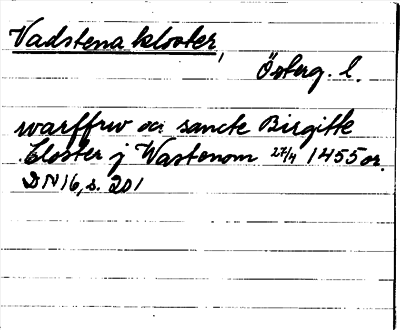 Vadstena kloster,
Österg. l.
warffrw oc sancte Birgitte
Closter j Wastenom 27/4 1455 or.
DN 16, s. 201